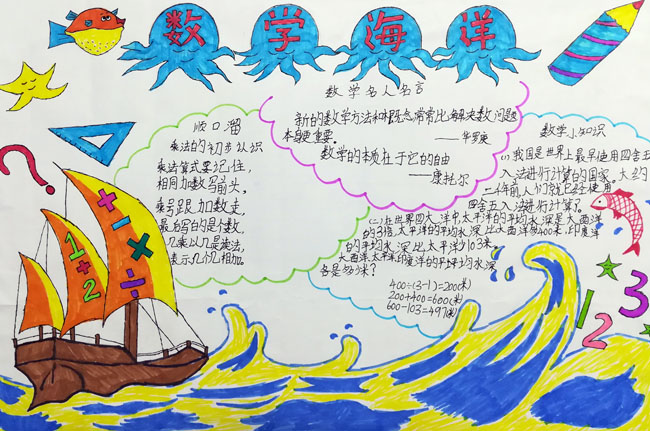 数学海洋
数学名人名言
新的数学方法和概念,常常比解决数学问题
本身更重要。
——华罗庚
数学的本质在于它的自由
——康托尔
顺口溜
乘法的初步认识
乘法算式要记住,
相同加数写前头,
乘号跟加数走,
最后写的是个数,
几乘以几是读法,
表示几个几相加。
数学小知识
(一)我国是世界上最早使用四舍五
入法进行计算的国家。大约
二千年前人们就已经使用
四舍五入法进行计算了。
(二)在世界四大洋中太平洋的平均水深是大西洋
的3倍,太平洋的平均水深比大西洋多400米,印度洋
的平均水深比太平洋少103米。
大西洋太平洋印度洋的平均水深
各是多少米?
400÷(3-1)=200(米)
200+400=600(米)
600-103=497(米)
?
+ - × ÷
1+2
1 2 3